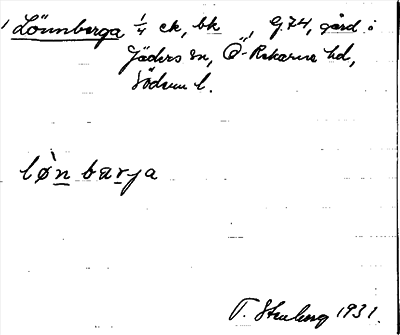 1 Lönnberga 1/4 ek, bk „ G.74, gård i
Jäders sn, Ö-Rekarne hd,
Söderm l.
lø̀n bærja
T. Stenberg 1931.